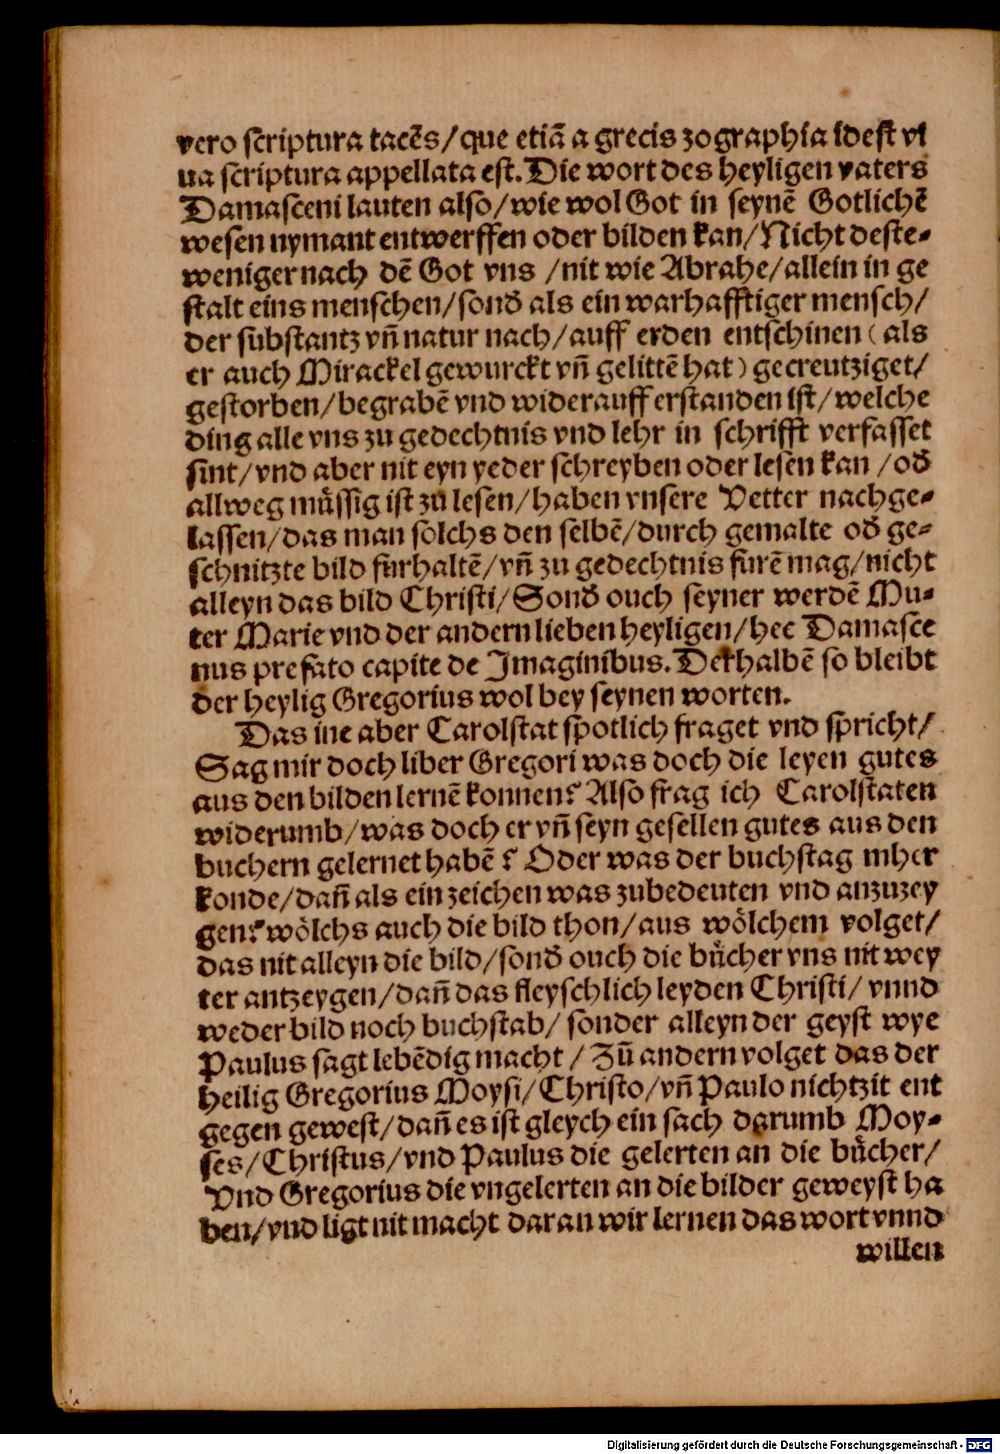 vero scriptura tacẽs/que etiã a grecis zographia idest vi
ua scriptura appellata est. Die wort des heyligen vaters
Damasceni lauten also/wie wol Got in seynẽ Gotlichẽ
wesen nymant entwerffen oder bilden kan/Nicht deste-
weniger nach dẽ Got vns /nit wie Abrahe/allein in ge
stalt eins menschen/sond̕ als ein warhafftiger mensch/
der substantz vñ natur nach/auff erden entschinen (als
er auch Mirackel gewurckt vñ gelittẽ hat) gecreutziget/
gestorben/begrabẽ vnd widerauff erstanden ist/welche
ding alle vns zu gedechtnis vnd lehr in schrifft verfasset
sint/vnd aber nit eyn yeder schreyben oder lesen kan /od̕
allweg müssig ist zu lesen/haben vnsere Vetter nachge-
lassen/das man solchs den selbẽ/durch gemalte od̕ ge-
schnitzte bild furhaltẽ/vñ zu gedechtnis furẽ mag/nicht
alleyn das bild Christi/Sond̕ ouch seyner werdẽ Mu-
ter Marie vnd der andern lieben heyligen/hec Damasce
nus prefato capite de Imaginibus. Derhalbẽ so bleibt
der heylig Gregorius wol bey seynen worten.
Das ine aber Carolstat spotlich fraget vnd spricht/
Sag mir doch liber Gregori was doch die leyen gutes
aus den bilden lernẽ konnen? Also frag ich Carolstaten
widerumb/was doch er vñ seyn gesellen gutes aus den
buchern gelernet habẽ? Oder was der buchstag mher
konde/dañ als ein zeichen was zubedeuten vnd anzuzey
gen? wölchs auch die bild thon/aus wölchem volget/
das nit alleyn die bild/sond̕ ouch die bücher vns nit wey
ter antzeygen/dañ das fleyschlich leyden Christi/ vnnd
weder bild noch buchstab/ sonder alleyn der geyst wye
Paulus sagt lebẽdig macht / Zũ andern volget das der
heilig Gregorius Moysi/Christo/vñ Paulo nichtzit ent
gegen gewest/dañ es ist gleych ein sach darumb Moy-
ses/Christus/vnd Paulus die gelerten an die bücher/
Vnd Gregorius die vngelerten an die bilder geweyst ha
ben/vnd ligt nit macht daran wir lernen das wort vnnd
willen
Digitalisierung gefördert durch die Deutsche Forschungsgemeinschaft - DFG